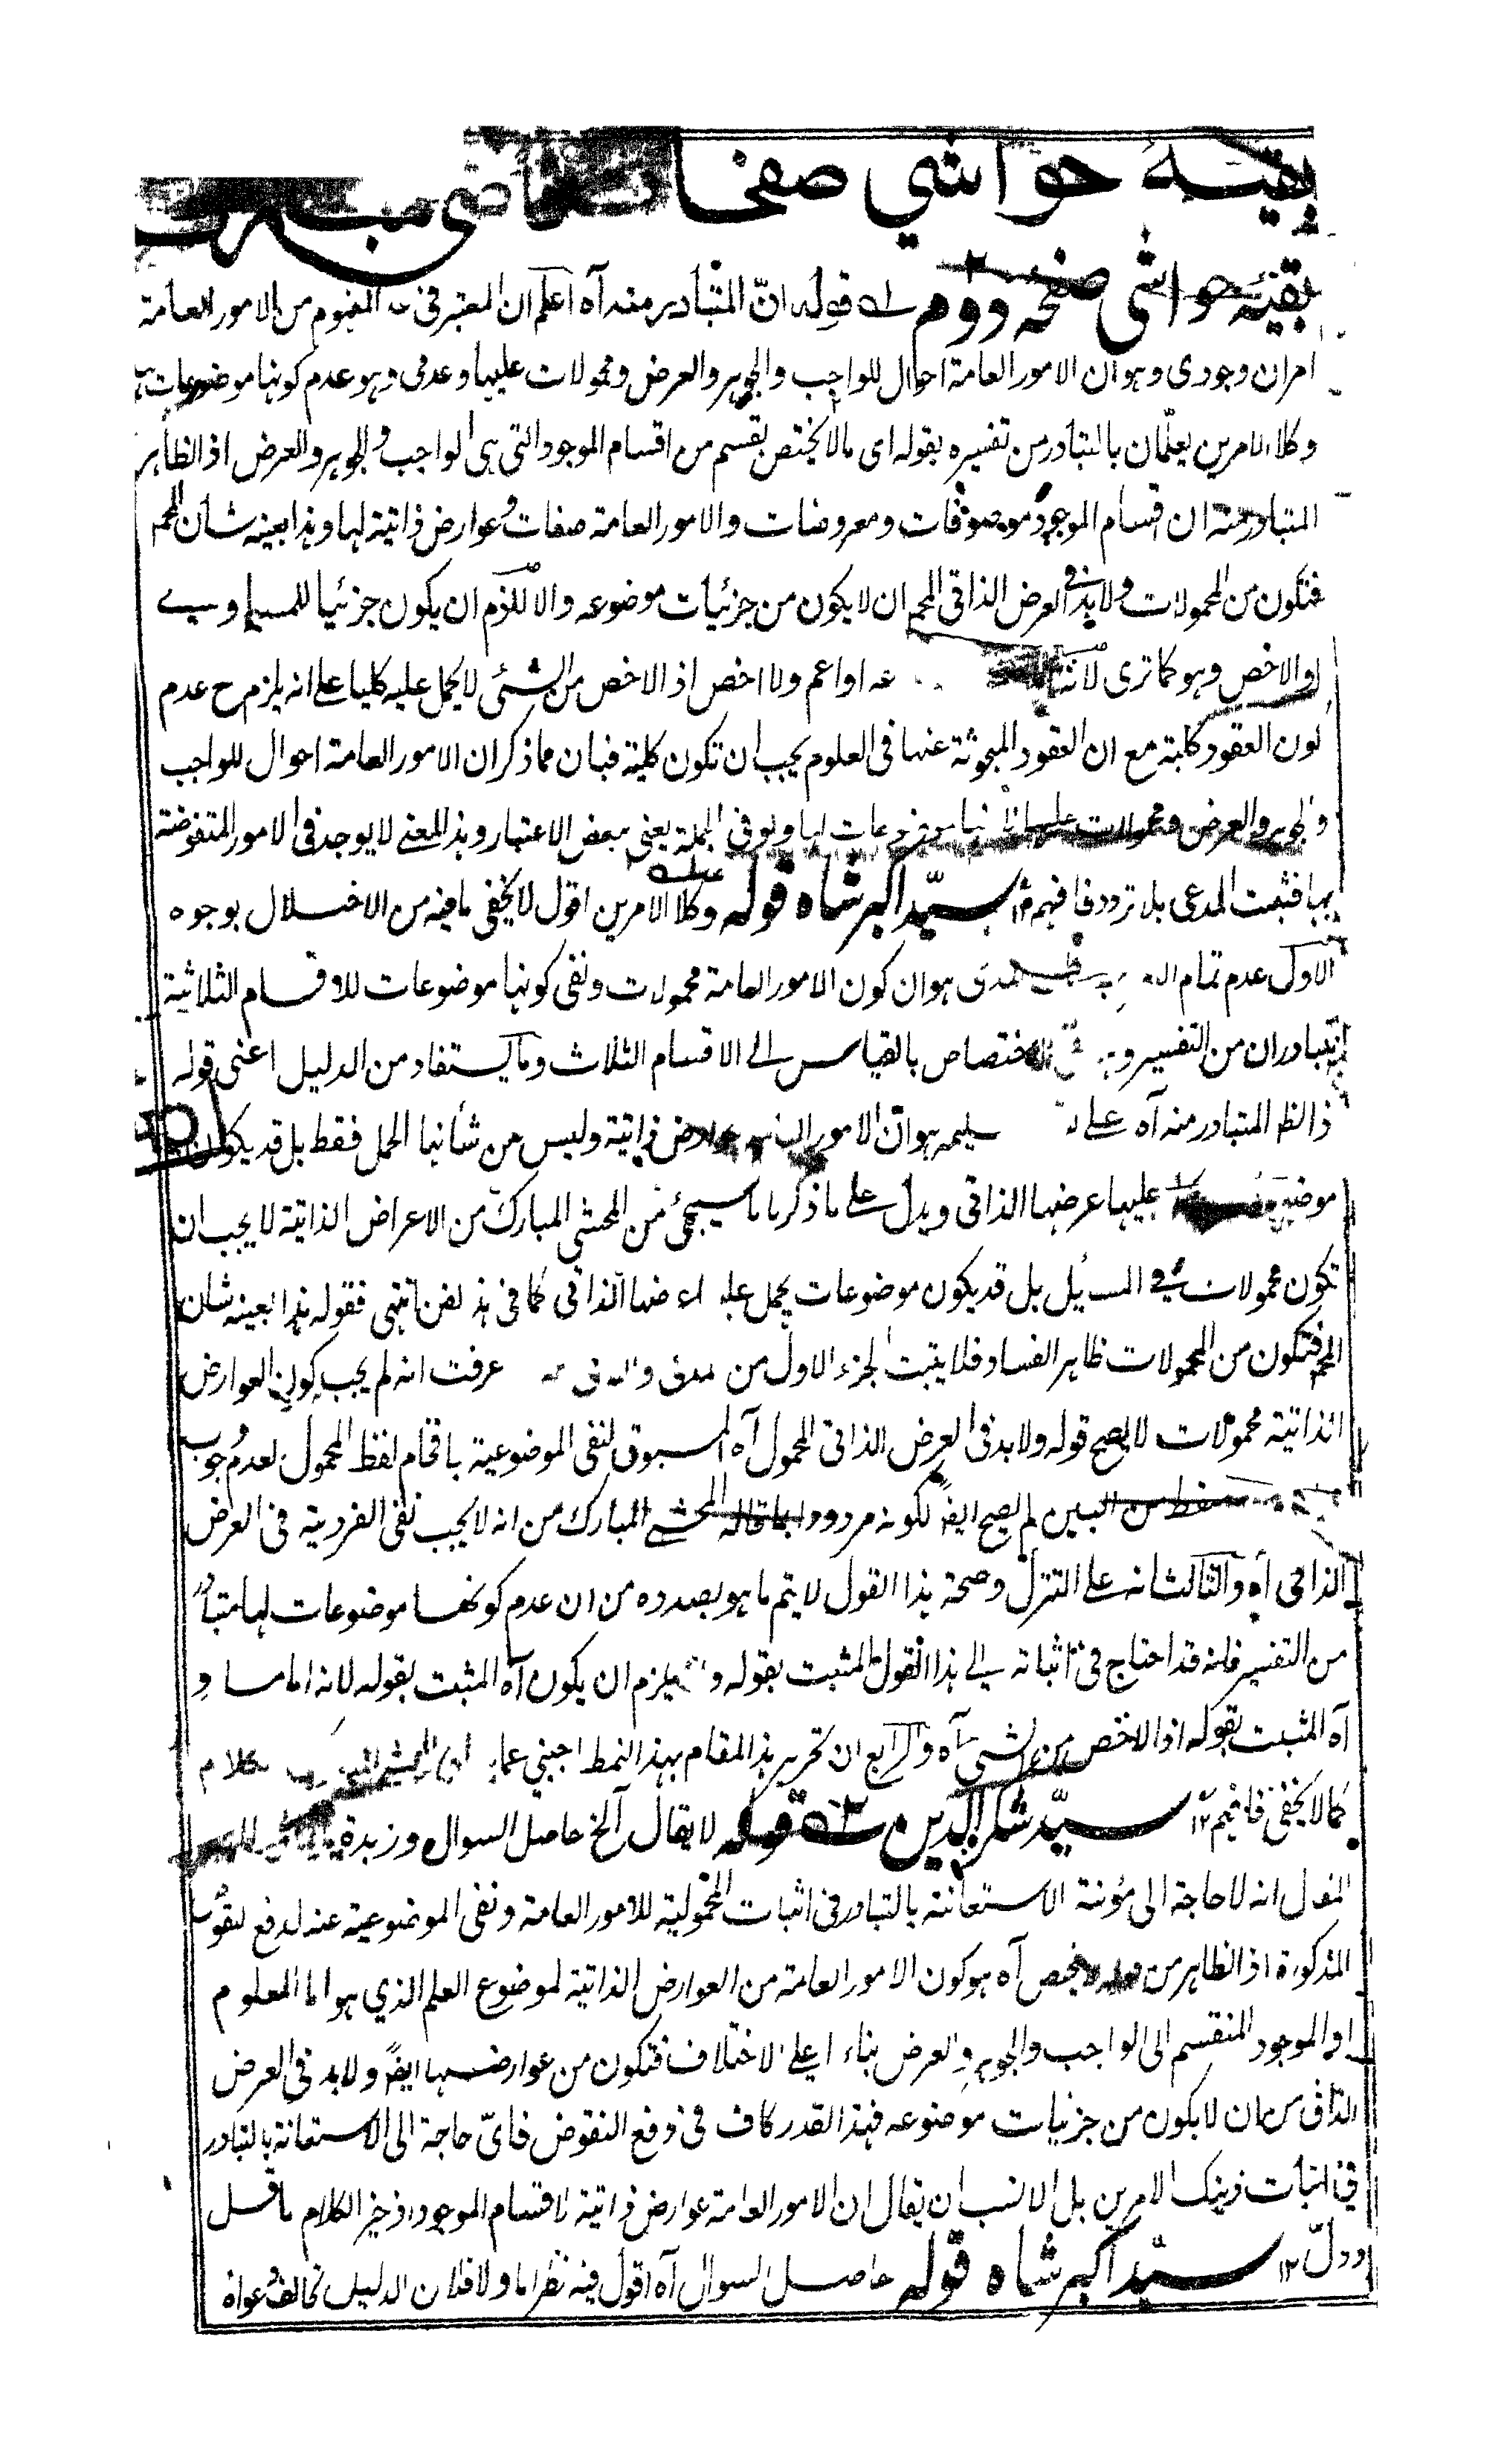 بقیه حواشی صفحات قاضی مبارک
بقیه حواشی صفحه دوم له قوله ان المتبادر منه آه اعلم ان المعتبر فی المفهوم من الامور العامة
امران وجودی وهو ان الامور العامة احوال للواجب والجوهر والعرض ومحمولات علیها وعدمی وهو عدم کونها موضوعات لها
وکلا الامرین یعلمان بالتبادر من تفسیره بقوله ای مالا یختص بقسم من اقسام الموجود التی هی الواجب والجوهر والعرض اذ الظاهر
المتبادر منه ان اقسام الموجود موصوفات ومعروضات والامور العامة صفات وعوارض ذاتیة لها وهذا بعینه شأن المحم
فتکون من المحمولات ولابد فی العرض الذاتی المحم ان لا یکون من جزئیات موضوعه والا للزم ان یکون جزئیا للمساوی
او الاخص وهو کما تری لانه عه او اعم ولا اخص اذ الاخص من الشئی لا یحمل علیه کلیا علی انه یلزم ح عدم
کون العقود کلیة مع ان العقود المبحوثة عنها فی العلوم یجب ان تکون کلیة فبان مما ذکر ان الامور العامة احوال للواجب
والجوهر والعرض ومحمولات علیها لا انها موضوعات لها ولو فی الجملة یعنی ببعض الاعتبار وهذا المعنی لا یوجد فی الامور المنقوضة
بها فثبت المدعی بلا تردد فافهم ۱۲ سید اکبر شاه قوله وکلا الامرین اقول لا یخفی ما فیه من الاختلال بوجوه
الاول عدم تمام هو ان کون الامور العامة محمولات ونفی کونها موضوعات للاقسام الثلاثیة
یتبادران من التفسیر الاختصاص بالقیاس الی الاقسام الثلاث وما یستفاد من الدلیل اعنی قوله
اذ الظ المتبادر منه آه علی تسلیمه هو ان الامور العامة عوارض ذاتیة ولیس من شأنها الحمل فقط بل قد یکون
موضوعه علیها عرضها الذاتی ویدل علی ما ذکرنا ما سیجئ من المحشی المبارک من الاعراض الذاتیة لا یجب ان
تکون محمولات فی المسئل بل قد یکون موضوعات یحمل علیه اعراضها الذاتی کما فی هذا الفن انتهی فقوله هذا بعینه شان
المحم فتکون من المحمولات ظاهر الفساد فلا یثبت الجزء الاول من عرفت انه لم یجب کون العوارض
الذاتیة محمولات لا یصح قوله ولا بد فی العرض الذاتی المحمول آه المسبوق لنفی الموضوعیة باقحام لفظ المحمول لعدم وجوب
سقط من البین لم یصح ایضا لکونه مردودا بما قاله المحشی المبارک من انه لا یجب نفی الفردیة فی العرض
الذاتی آه والثالث انه علی التنزل وصحة هذا القول لا یتم ما هو بصدده من ان عدم کونها موضوعات لها متبادر
من التفسیر فانه قد احتاج فی اثباته الی هذا القول المثبت بقوله والا یلزم ان یکون آه المثبت بقوله لانه اما مساو
آه المثبت بقوله اذ الاخص من الشئی آه والرابع ان تحریر هذا المقام بهذا النمط اجنبی عما کلام
کما لا یخفی فافهم ۱۲ سید شکر الدین ۵۲ قوله لا یقال آلخ حاصل السوال وزبدة
المقال انه لا حاجة الی مؤنة الاستعانة بالتبادر فی اثبات المحمولیة للامور العامة ونفی الموضوعیة عنها لدفع النقوض
المذکورة اذ الظاهر من لا یختص آه هو کون الامور العامة من العوارض الذاتیة لموضوع العلم الذی هو اما المعلوم
او الموجود المنقسم الی الواجب والجوهر والعرض بناء علی الاختلاف فتکون من عوارضها ایضا ولا بد فی العرض
الذاتی من ان لا یکون من جزئیات موضوعه فهذا القدر کاف فی دفع النقوض فای حاجة الی الاستعانة بالتبادر
فی اثبات ذینک الامرین بل الانسب ان یقال ان الامور العامة عوارض ذاتیة لاقسام الموجود اذ خیر الکلام ما قل
ودل ۱۲ سید اکبر شاه قوله حاصل السوال آه اقول فیه نظر اما اولا فلان الدلیل تخالف دعواه